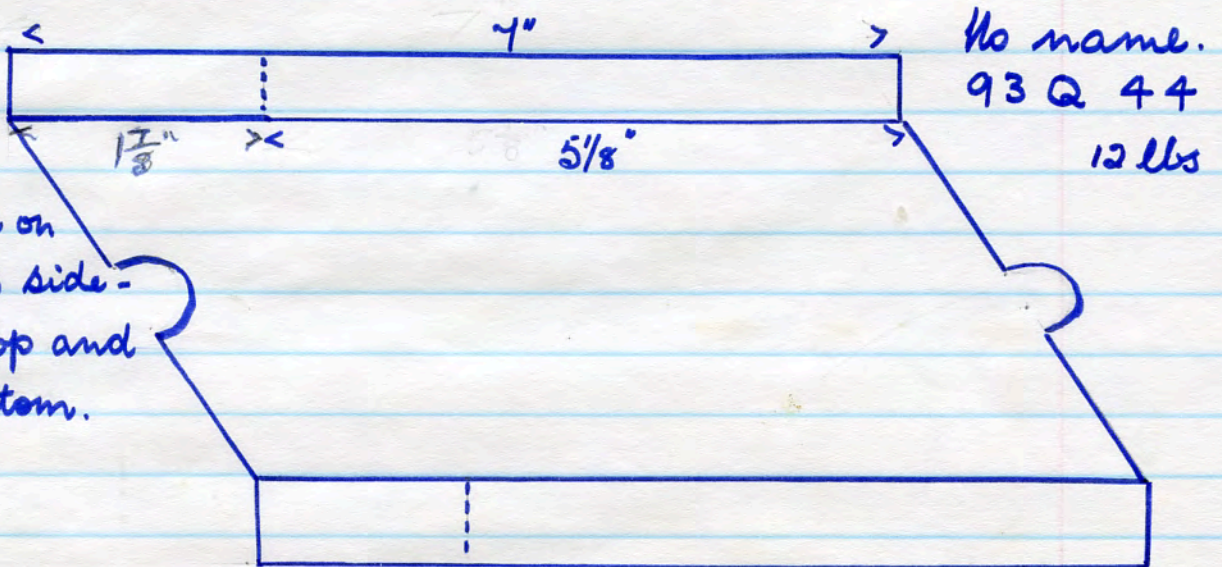 7"
No name.
93 Q 44
12 lbs
1 7/8"
5 1/8"
on
side-
op and
tom.